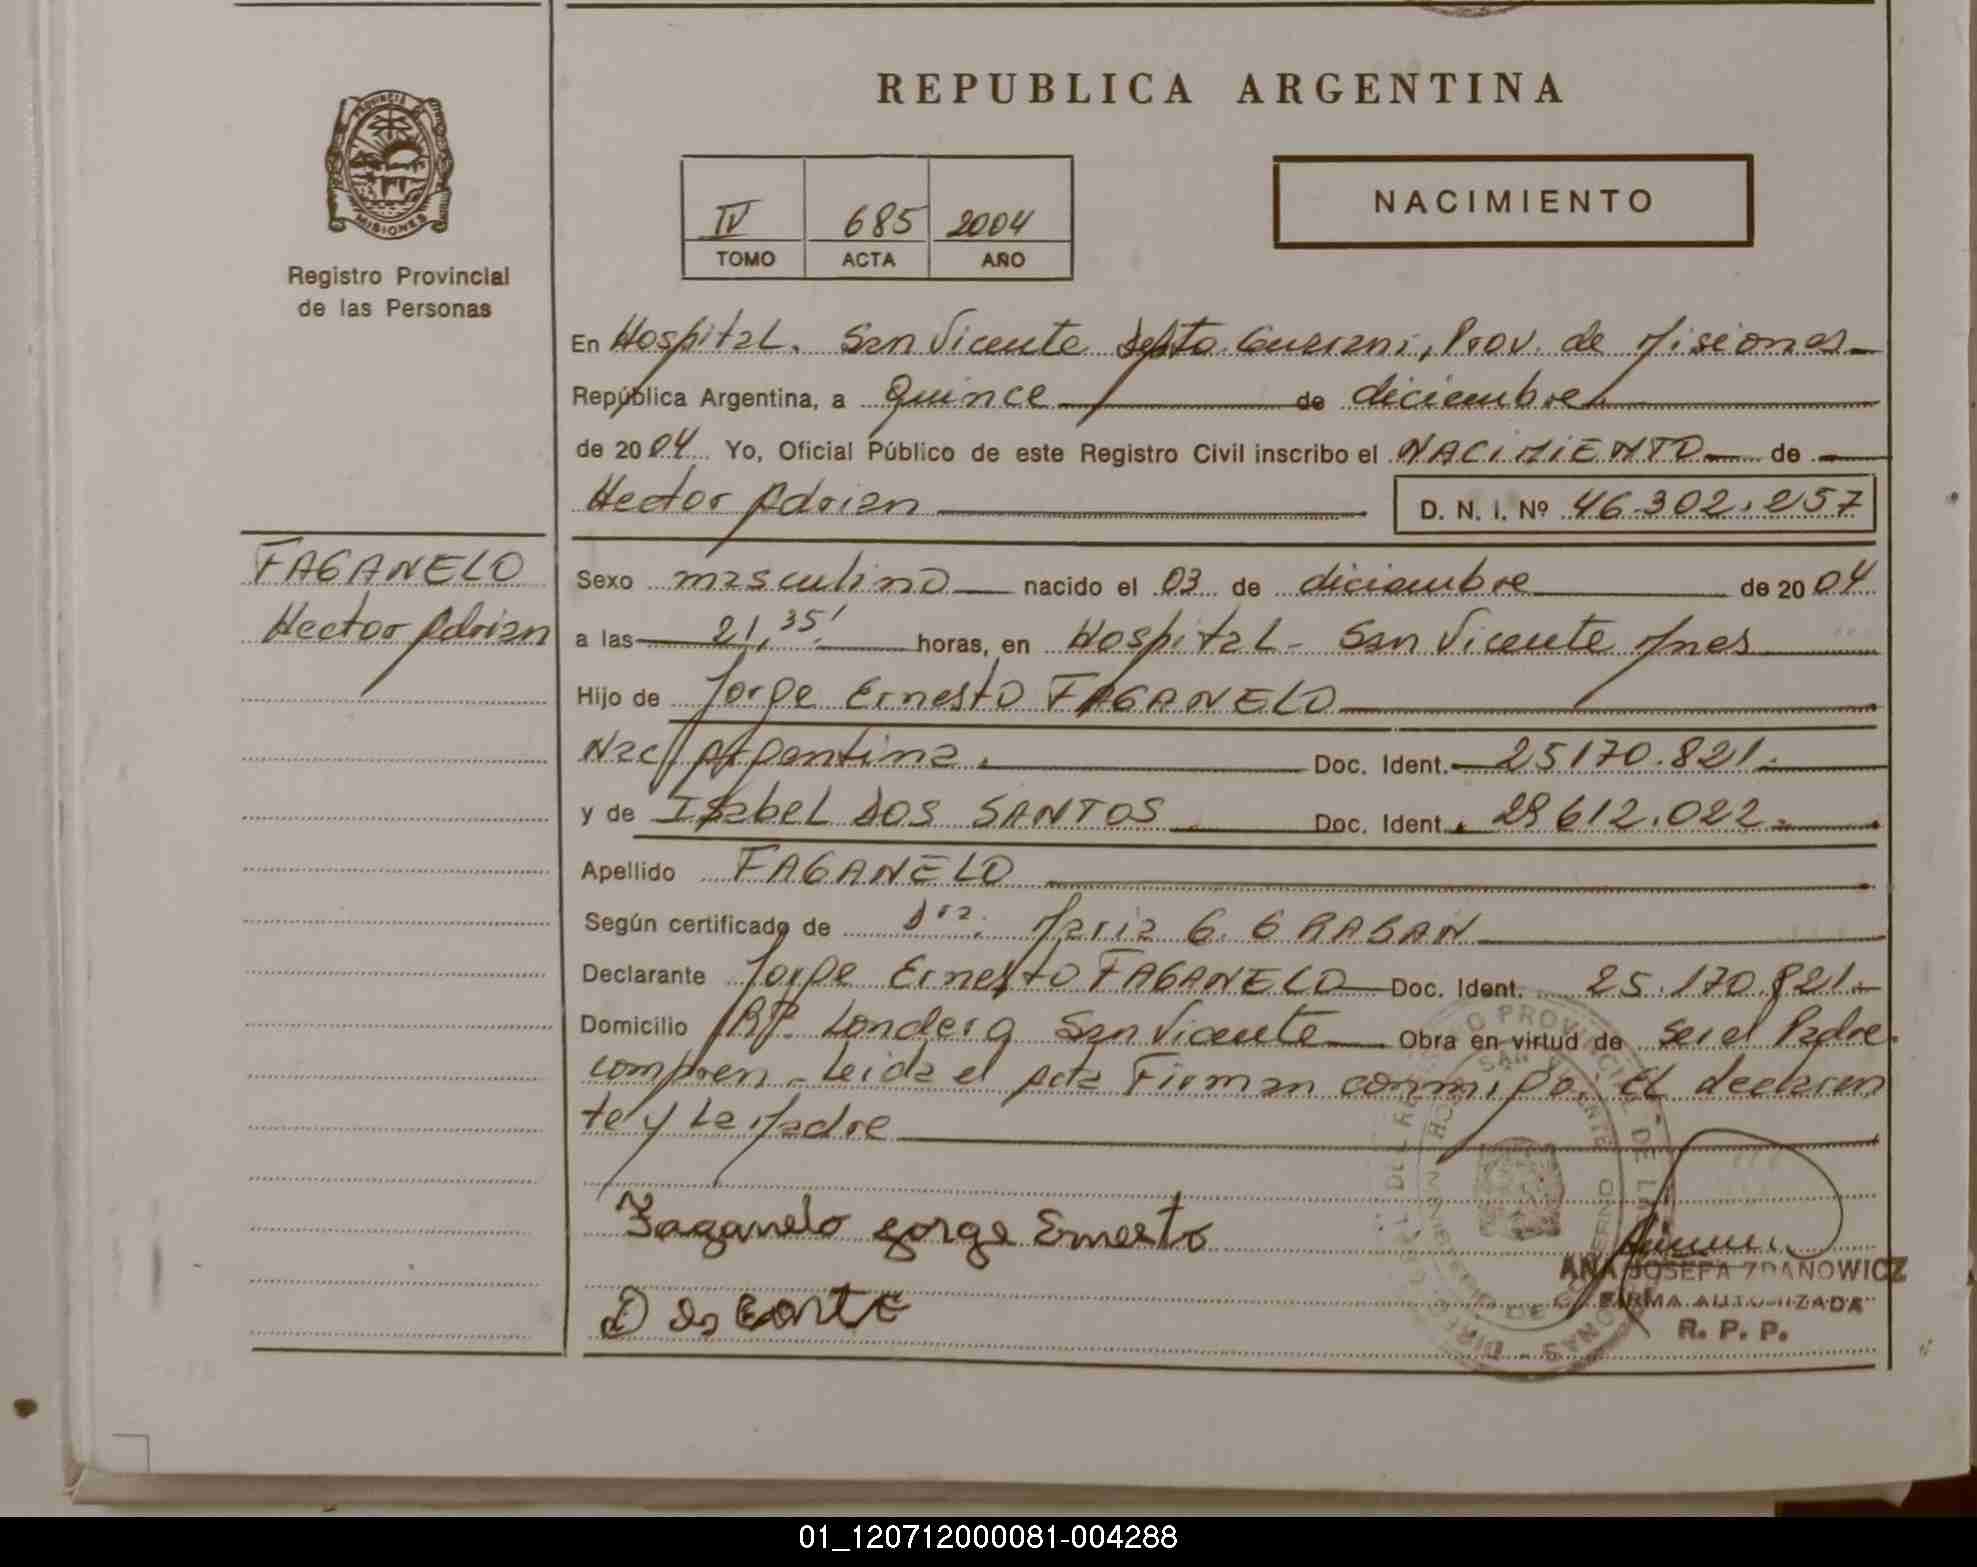 REPUBLICA ARGENTINA
PROVINCIA DE
MISIONES
Registro Provincial
de las Personas
IV 685 2004
TOMO ACTA AÑO
NACIMIENTO
En Hospital. San Vicente Depto Guarani, Prov. de Misiones
República Argentina, a Quince de diciembre
de 2004 Yo, Oficial Público de este Registro Civil inscribo el NACIMIENTO de
Hector Adrian D. N. I. Nº 46.302.257
FAGANELO
Hector Adrian
Sexo masculino nacido el 03 de diciembre de 2004
a las 21,35' horas, en Hospital - San Vicente Mnes
Hijo de Jorge Ernesto FAGANELO
Nac. Argentina. Doc. Ident. 25170.821.
y de Isabel DOS SANTOS Doc. Ident. 28612.022.
Apellido FAGANELO
Según certificado de Dra. Maria G. GRABAN
Declarante Jorge Ernesto FAGANELO Doc. Ident. 25.170.821.
Domicilio San Vicente Obra en virtud de ser el Padre.
compren. Leida el acta Firman conmigo. El declaran
te y la Madre
Faganelo Jorge Ernesto
ANA JOSEFA ZDANOWICZ
FIRMA AUTORIZADA
R. P. P.
01_120712000081-004288